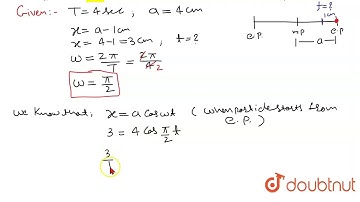 Given:- T = 4 sec , a = 4 cm
x = a - 1 cm
x = 4 - 1 = 3 cm , t = ?
ω = 2π/T = 2π/4 2
ω = π/2
t = ?
1cm
e.p. m.p. e.p.
a
We know that, x = a cos ωt ( when particle starts from
e.p. )
3 = 4 cos π/2 t
3
doubtnut